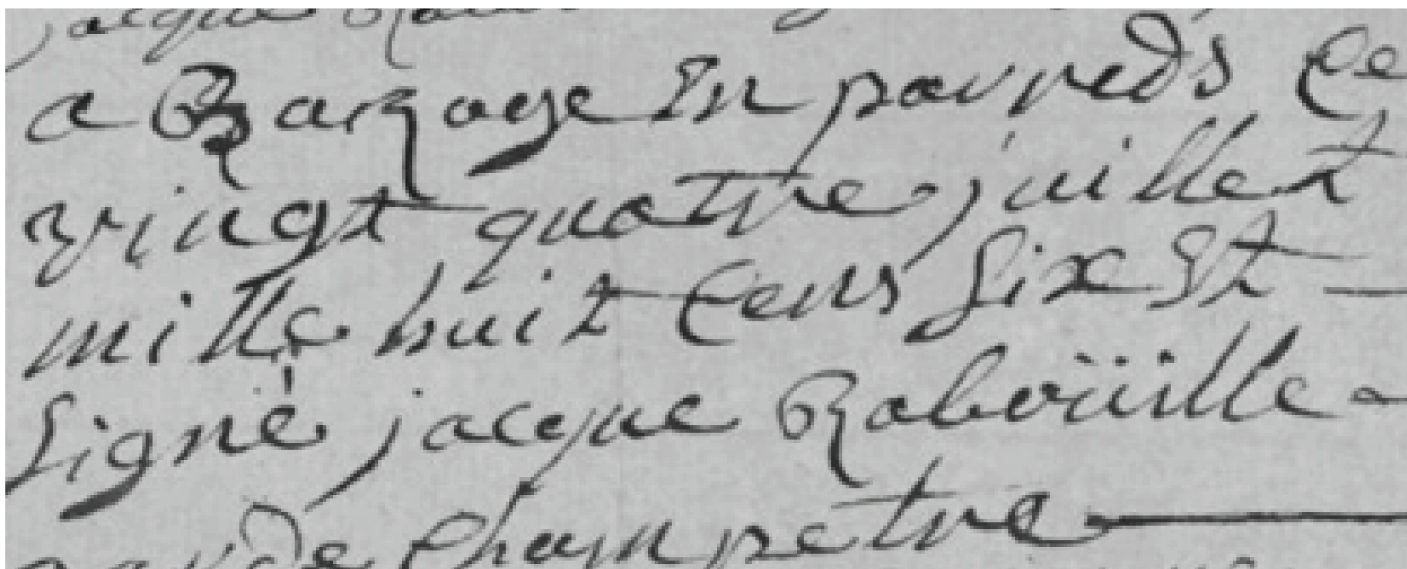 jacque
a Razage En pavreds Ce
vingt quatre juillet
mille huit Cens Six Et —
Signé jacque Raboüille
garde Champetre